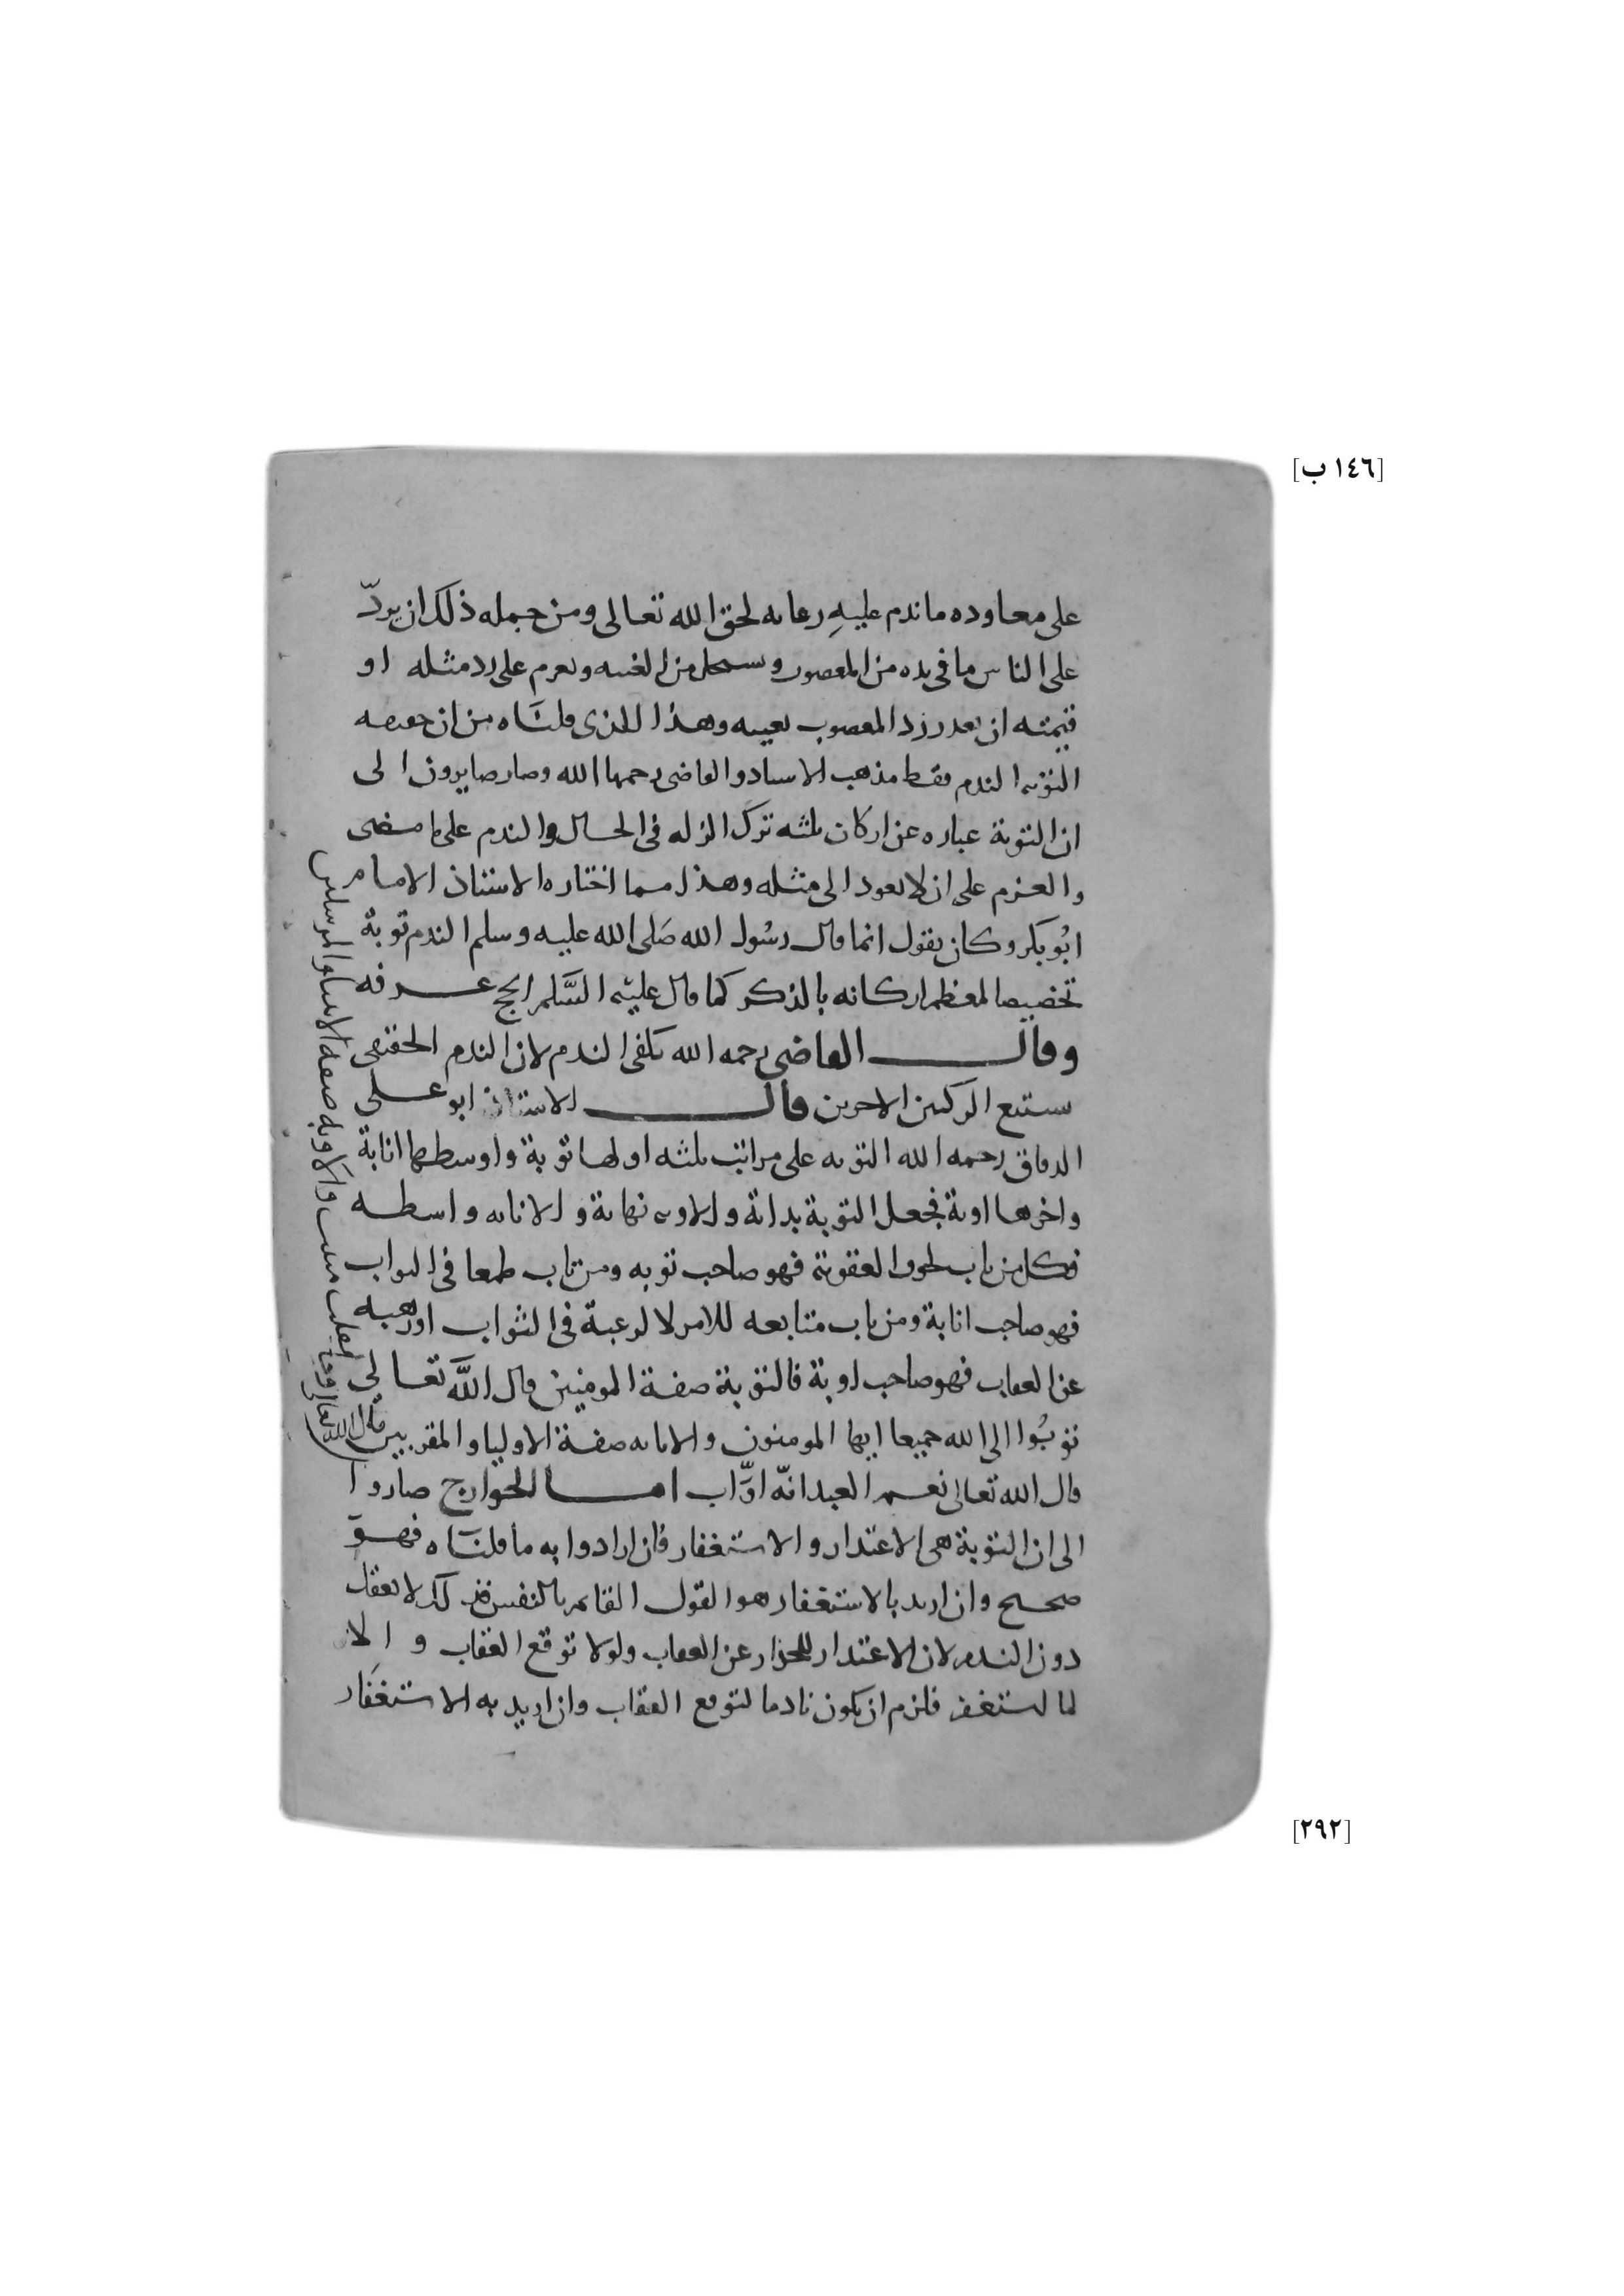 [١٤٦ ب]
على معاوده ما ندم عليهِ رعايه لحق الله تعالى ومن جمله ذلك ان يردّ
على الناس ما في يده من المغصوب ويستحل من الغيبه ويعزم على رد مثله او
قيمته ان تعذر رد المغصوب بعينه وهذا الذي قلنَاه من ان حقيقه
التوبه الندم فقط مذهب الاستاد والقاضي رحمهما الله وصار صايرون الى
ان التوبة عباره عن اركان ثلثه ترك الزله في الحال والندم على ما مضى
والعزم على ان لا يعود الى مثله وهذا مما اختاره الاستاذ الامام
ابُو بكر وكان يقول انما قال رسُول الله صَلى الله عليه وسلم الندم توبة
تخصيصا لمعظم اركانه بالذكر كما قال عليْه السَّلم الحج عرفه
وقال القاضي رحمه الله يكفي الندم لان الندم الحقيقي
يستتبع الركنين الاخرين قال الاستاذ ابو علي
الدقاق رحمه الله التوبه على مراتب ثلثه اولها توبة واوسطها انابة
واخرها اوبة فجعل التوبة بداية والاوبه نهاية والانابه واسطه
فكل من تاب لخوف العقوبة فهو صاحب توبه ومن تاب طمعا في الثواب
فهو صاحب انابة ومن تاب متابعه للامر لا لرغبة في الثواب او رهبه
عن العقاب فهو صاحب اوبة فالتوبة صفة المومنين قال اللَّه تعالى
توبُوا الى الله جميعا ايها المومنون والانابه صفة الاوليا والمقربين قال الله تعالى وجا بقلب منيب والاوبه صفه الانبيا والمرسلين
قال الله تعالى نعم العبد انّه اوَّاب اما الخوارج صاروا
الى ان التوبة هي الاعتذار والاستغفار فان ارادوا به ما قلنَاه فهو
صحيح وان اريد بالاستغفار هو القول القايم بالنفس فذلك لا يعقل
دون الندم لان الاعتذار للحذار عن العقاب ولولا توقع العقاب والا
لما استغفر فلزم ان يكون نادما لتوقع العقاب وان اريد به الاستغفار
[٢٩٢]